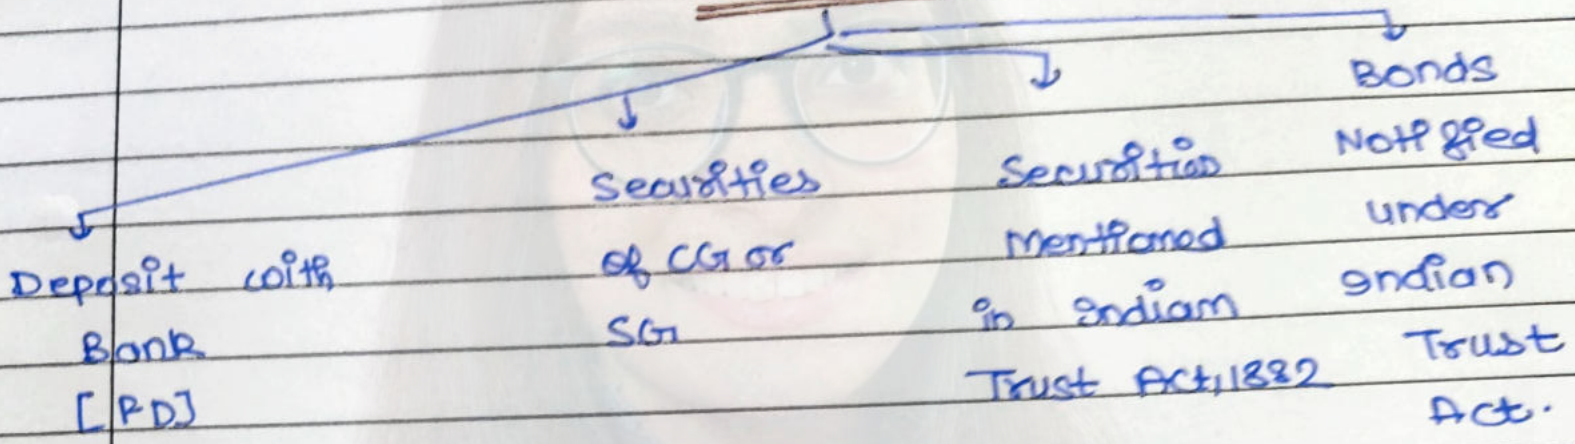 Deposit with
Bank
[FD]
Securities
of CG or
SG
Securities
Mentioned
in Indian
Trust Act, 1882
Bonds
Notified
under
Indian
Trust
Act.